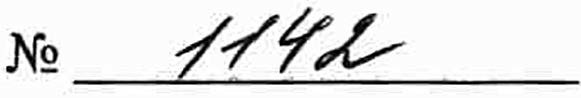 № 1142